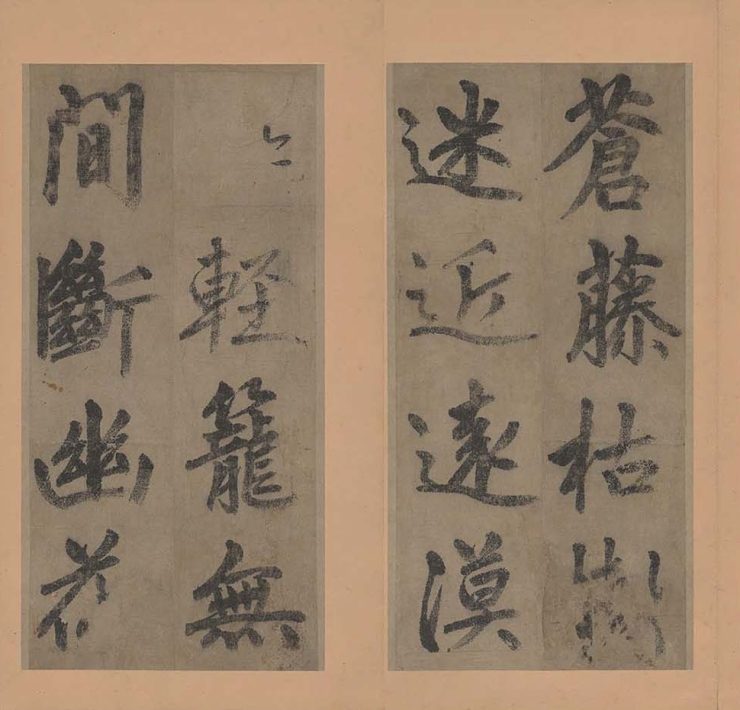 蒼藤枯樹
迷近遠漠
〻軽籠無
間斷幽花